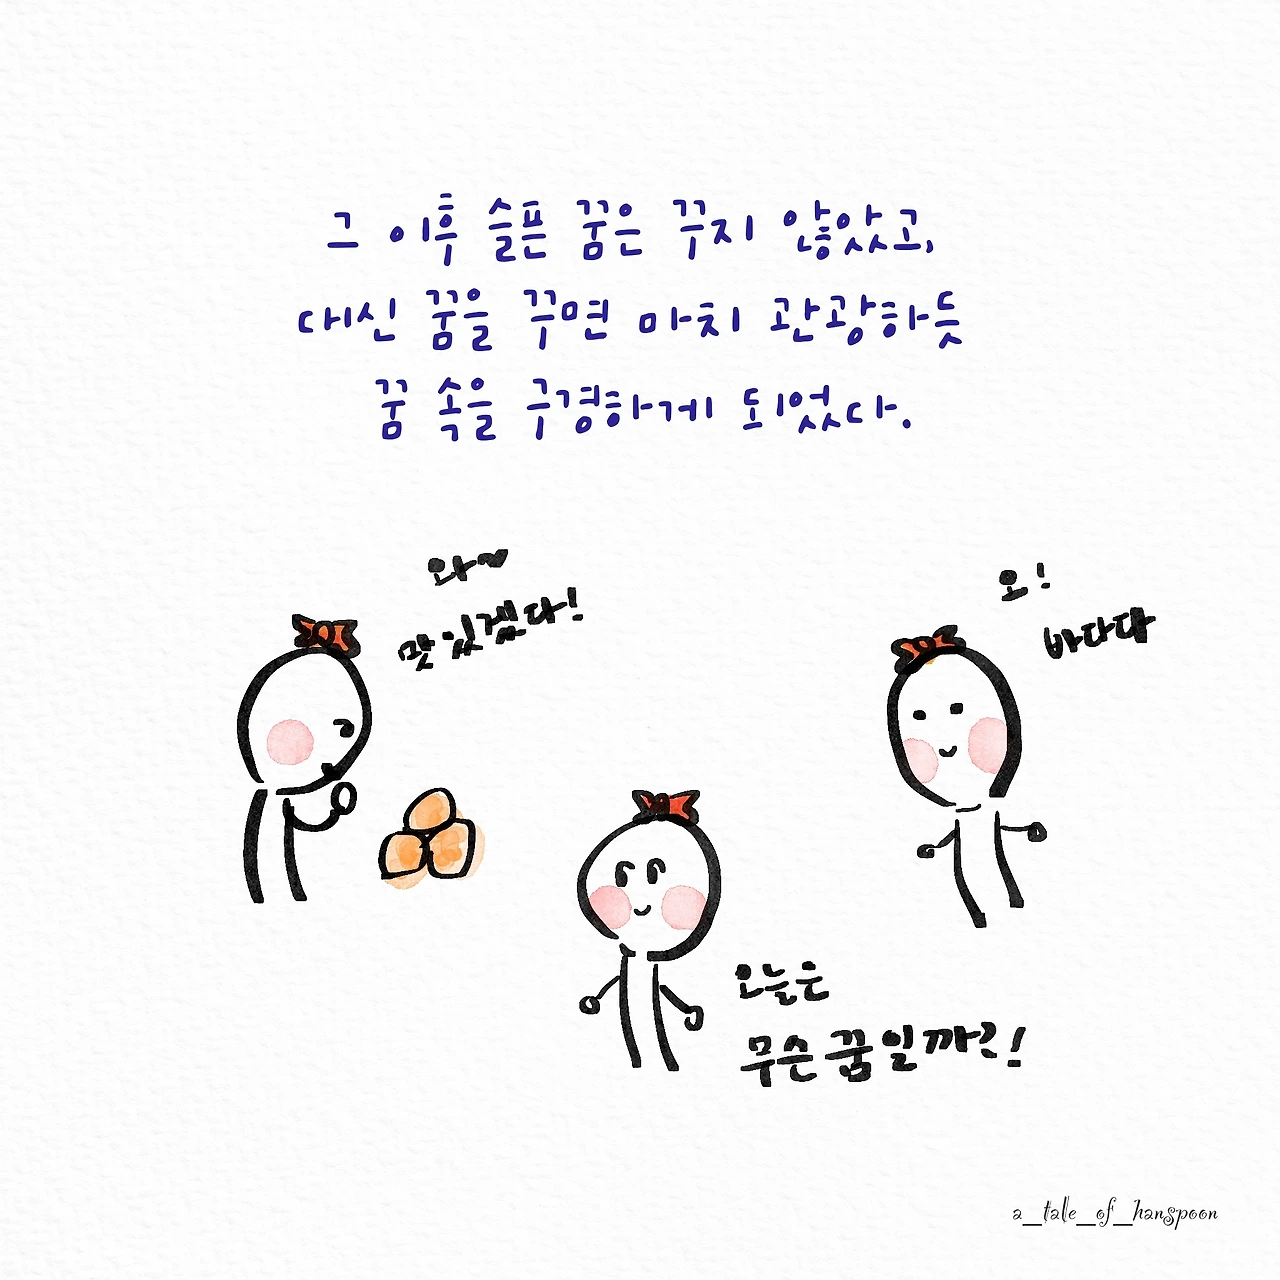 그 이후 슬픈 꿈은 꾸지 않았고,
대신 꿈을 꾸면 마치 관광하듯
꿈 속을 구경하게 되었다.
와❤
맛있겠다!
오!
바다다
오늘은
무슨 꿈일까?!
a_tale_of_hanspoon